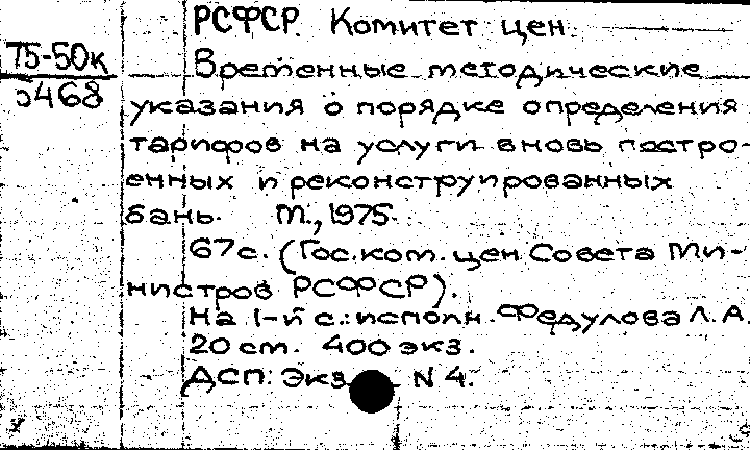 РСФСР. Комитет цен.
75-50к
5468
Временные методические
указания о порядке определения
тарифов на услуги вновь постро-
енных и реконструированных
бань. М., 1975.
67с. (Гос. ком. цен Совета Ми-
нистров РСФСР).
На 1-й с.: исполн. Федулова Л. А.
20 см. 400 экз.
ДСП: Экз. N 4.